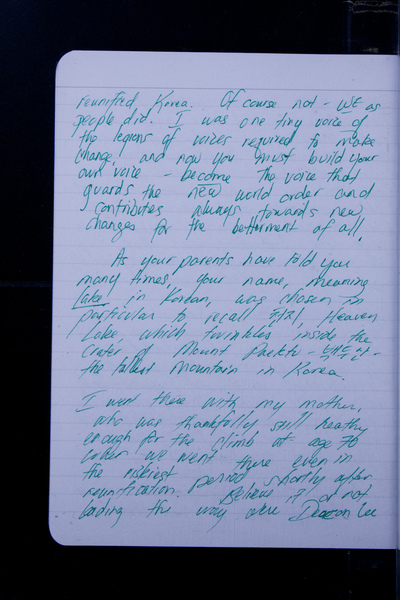 reunified Korea. Of course not - WE as
people did. I was one tiny voice of
the legions of voices required to make
change, and now you must build your
own voice - become the voice that
guards the new world order and
contributes always towards new
changes for the betterment of all.
As your parents have told you
many times, your name, meaning
lake, in Korean, was chosen in
particular to recall 천지, Heaven
Lake, which twinkles inside the
crater of Mount Paektu - 백두산 -
the tallest mountain in Korea.
I went there with my mother,
who was thankfully still healthy
enough for the climb at age 76
when we went there even in
the riskiest period shortly after
reunification. Believe it or not
leading the way were Deacon Lee